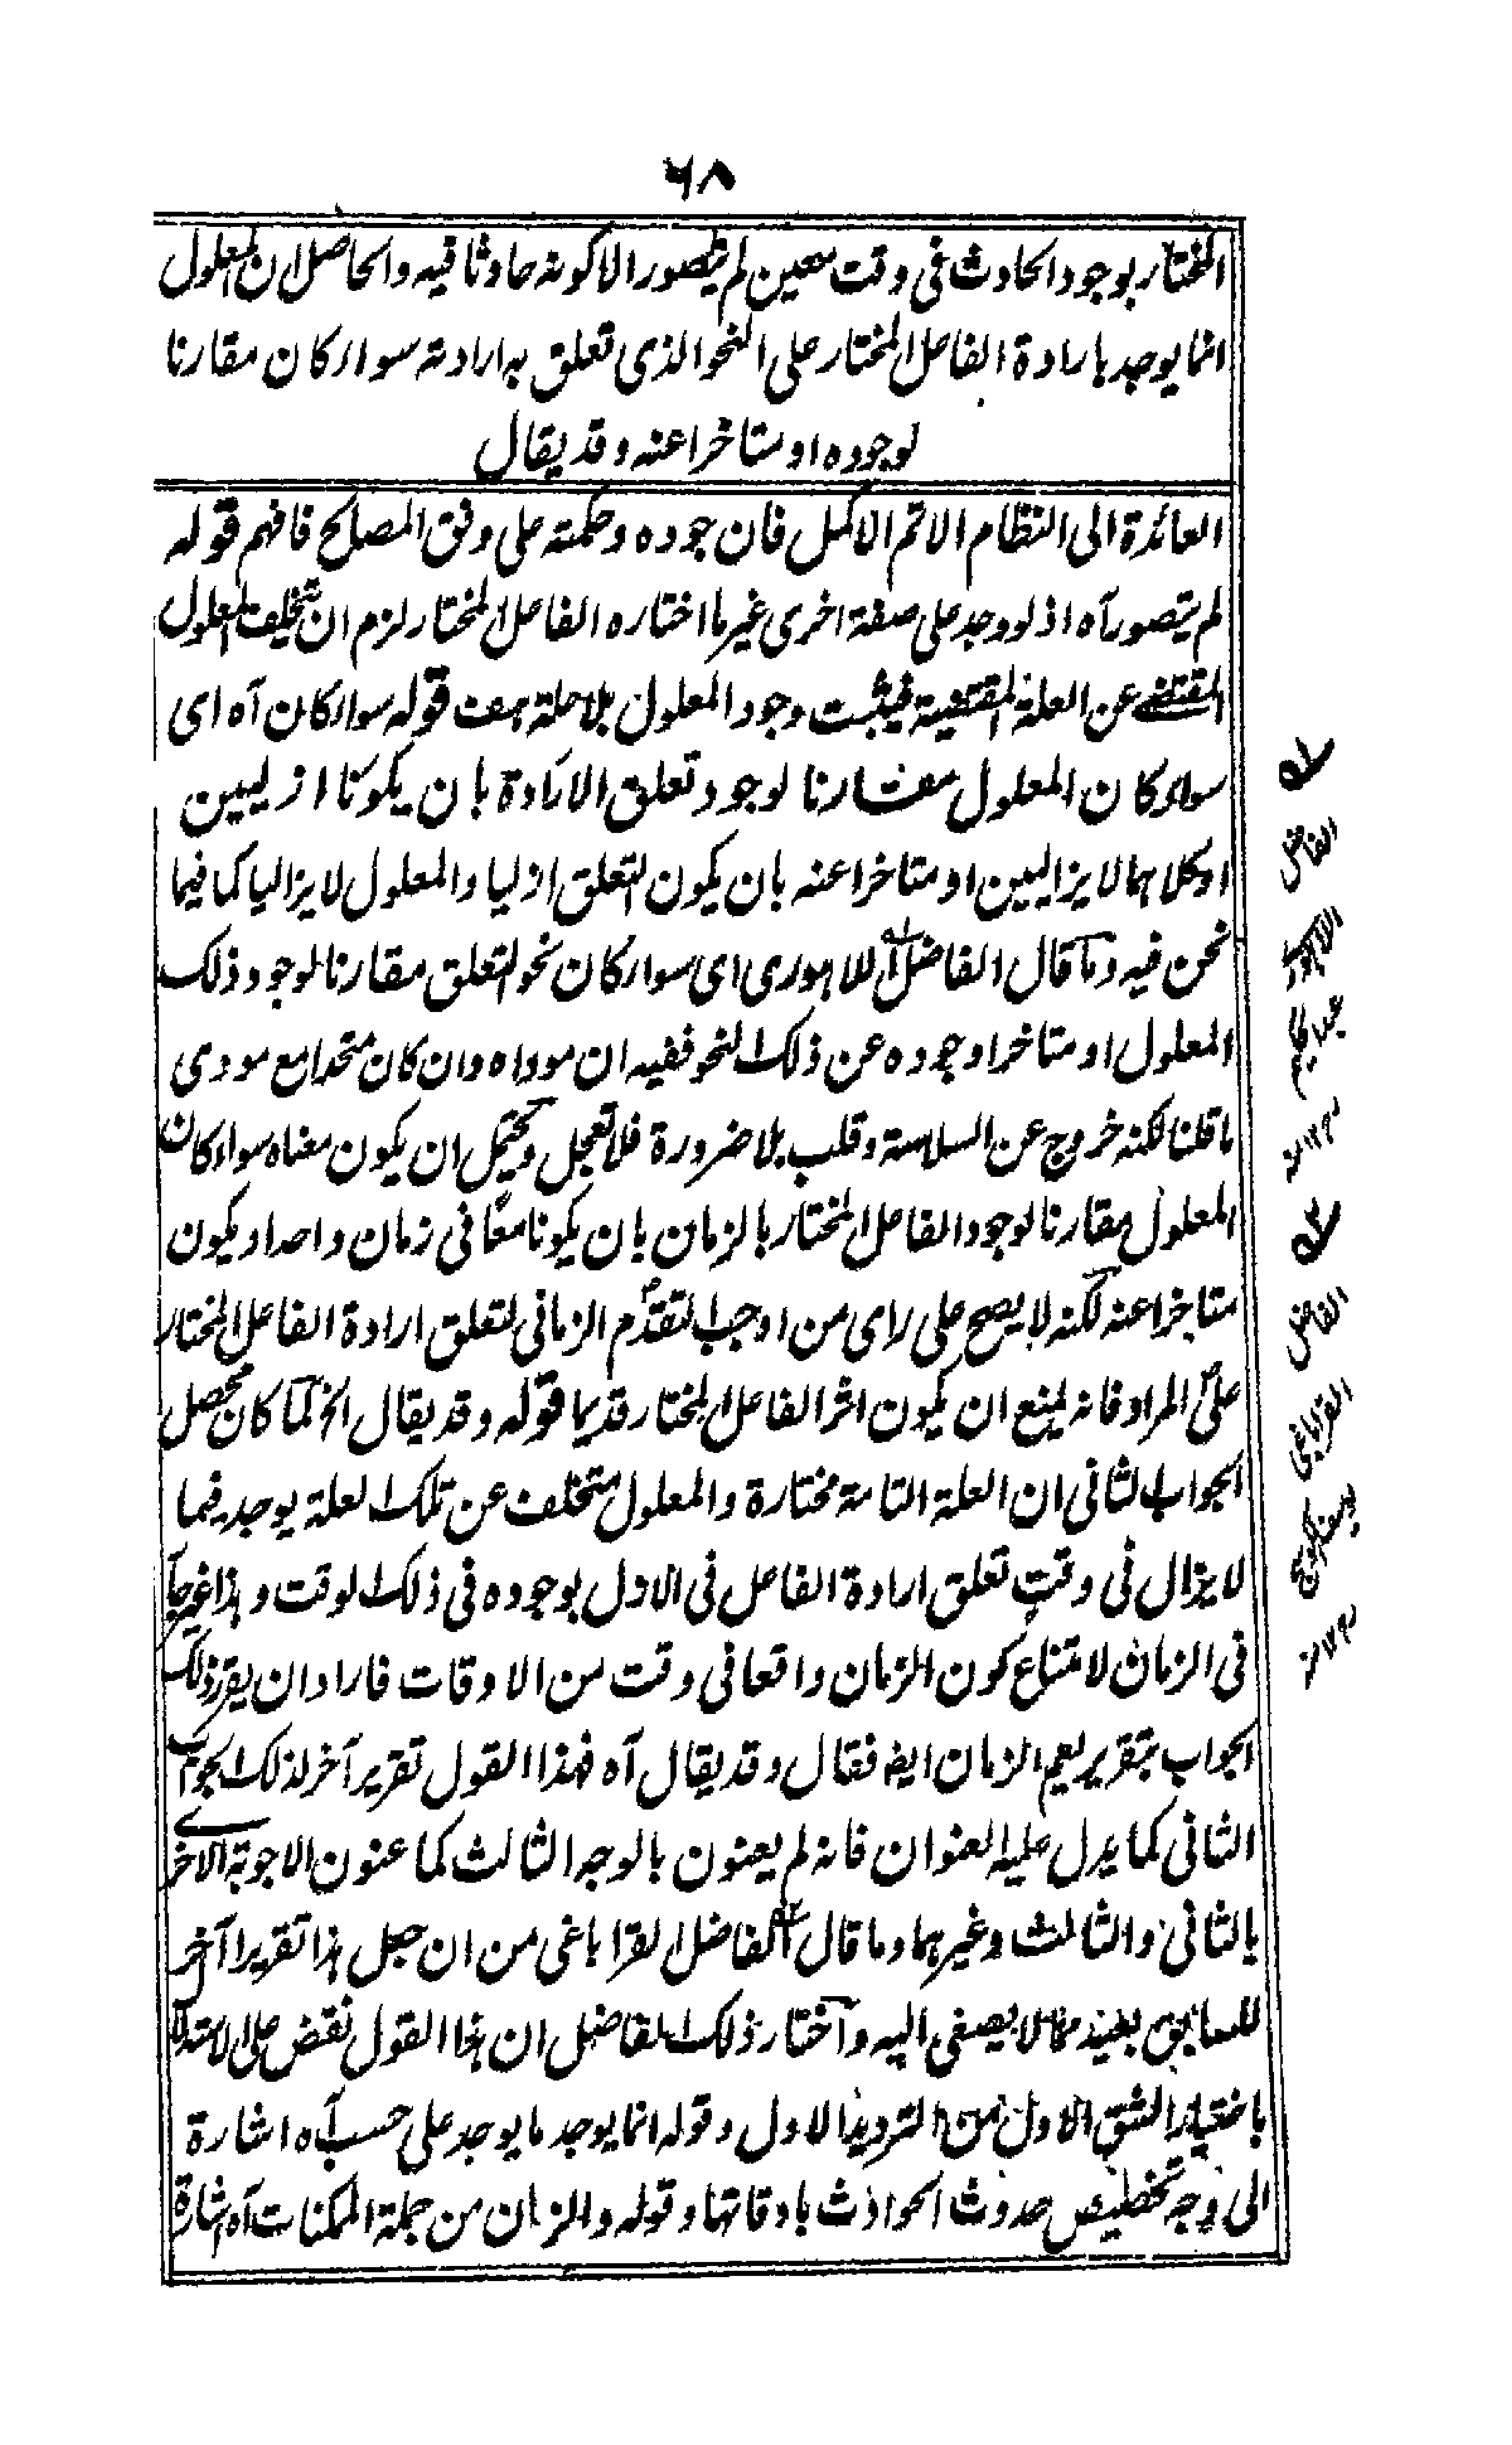 ٦٨
المختار بوجود الحادث فی وقت معین لم یتصور الا کونه حادثا فیه والحاصل ان المعلول
انما یوجد بارادة الفاعل المختار علی النحو الذی تعلق به ارادته سواء کان مقارنا
لوجوده او متاخرا عنه وقد یقال
العائدة الی النظام الاتم الاکمل فان جوده وحکمته علی وفق المصالح فافهم قوله
لم یتصور آه اذ لو وجد علی صفة اخری غیر ما اختاره الفاعل المختار لزم ان یتخلف المعلول
المقتضے عن العلة المقتضیة فیثبت وجود المعلول بلا علة هف قوله سواء کان آه ای
سواء کان المعلول مقارنا لوجود تعلق الارادة بان یکونا ازلیین
او کلاهما لا یزالیین او متاخرا عنه بان یکون التعلق ازلیا والمعلول لا یزالیا کما فیما
نحن فیه وما قال الفاضل اللاهوری ای سواء کان نحو التعلق مقارنا لوجود ذلک
المعلول او متاخرا وجوده عن ذلک النحو ففیه ان موداه وان کان متحدا مع مودی
ما قلنا لکنه خروج عن السلاسة وقلب بلا ضرورة فلا تعجل ویحتمل ان یکون معناه سواء کان
المعلول مقارنا لوجود الفاعل المختار بالزمان بان یکونا معًا فی زمان واحد او یکون
متاخرا عنه لکنه لا یصح علی رای من اوجب التقدم الزمانی لتعلق ارادة الفاعل المختار
علی المراد فانه یمنع ان یکون اثر الفاعل المختار قدیما قوله وقد یقال الخ لما کان محصل
الجواب الثانی ان العلة التامة مختارة والمعلول متخلف عن تلک العلة یوجد فیما
لا یزال فی وقت تعلق ارادة الفاعل فی الازل بوجوده فی ذلک الوقت وهذا غیر جار
فی الزمان لامتناع کون الزمان واقعا فی وقت من الاوقات فاراد ان یقرر ذلک
الجواب بتقریر یعم الزمان ایضا فقال وقد یقال آه فهذا القول تقریر آخر لذلک الجواب
الثانی کما یدل علیه العنوان فانه لم یعنون بالوجه الثالث کما عنون الاجوبة الاخری
بالثانی والثالث وغیرهما وما قال الفاضل القراباغی من ان جعل هذا تقریرا آخر
للسابق بعید مما لا یصغی الیه واختار ذلک الفاضل ان هذا القول نقض علی الاستدلال
باختیار الشق الاول من التردید الاول وقوله انما یوجد ما یوجد علی حسب آه اشارة
الی وجه تخصیص حدوث الحوادث باوقاتها وقوله والزمان من جملة الممکنات آه اشارة
الفاضل
عبد الحکیم
۱۲ منه
الفاضل
القراباغی
۱۲ منه